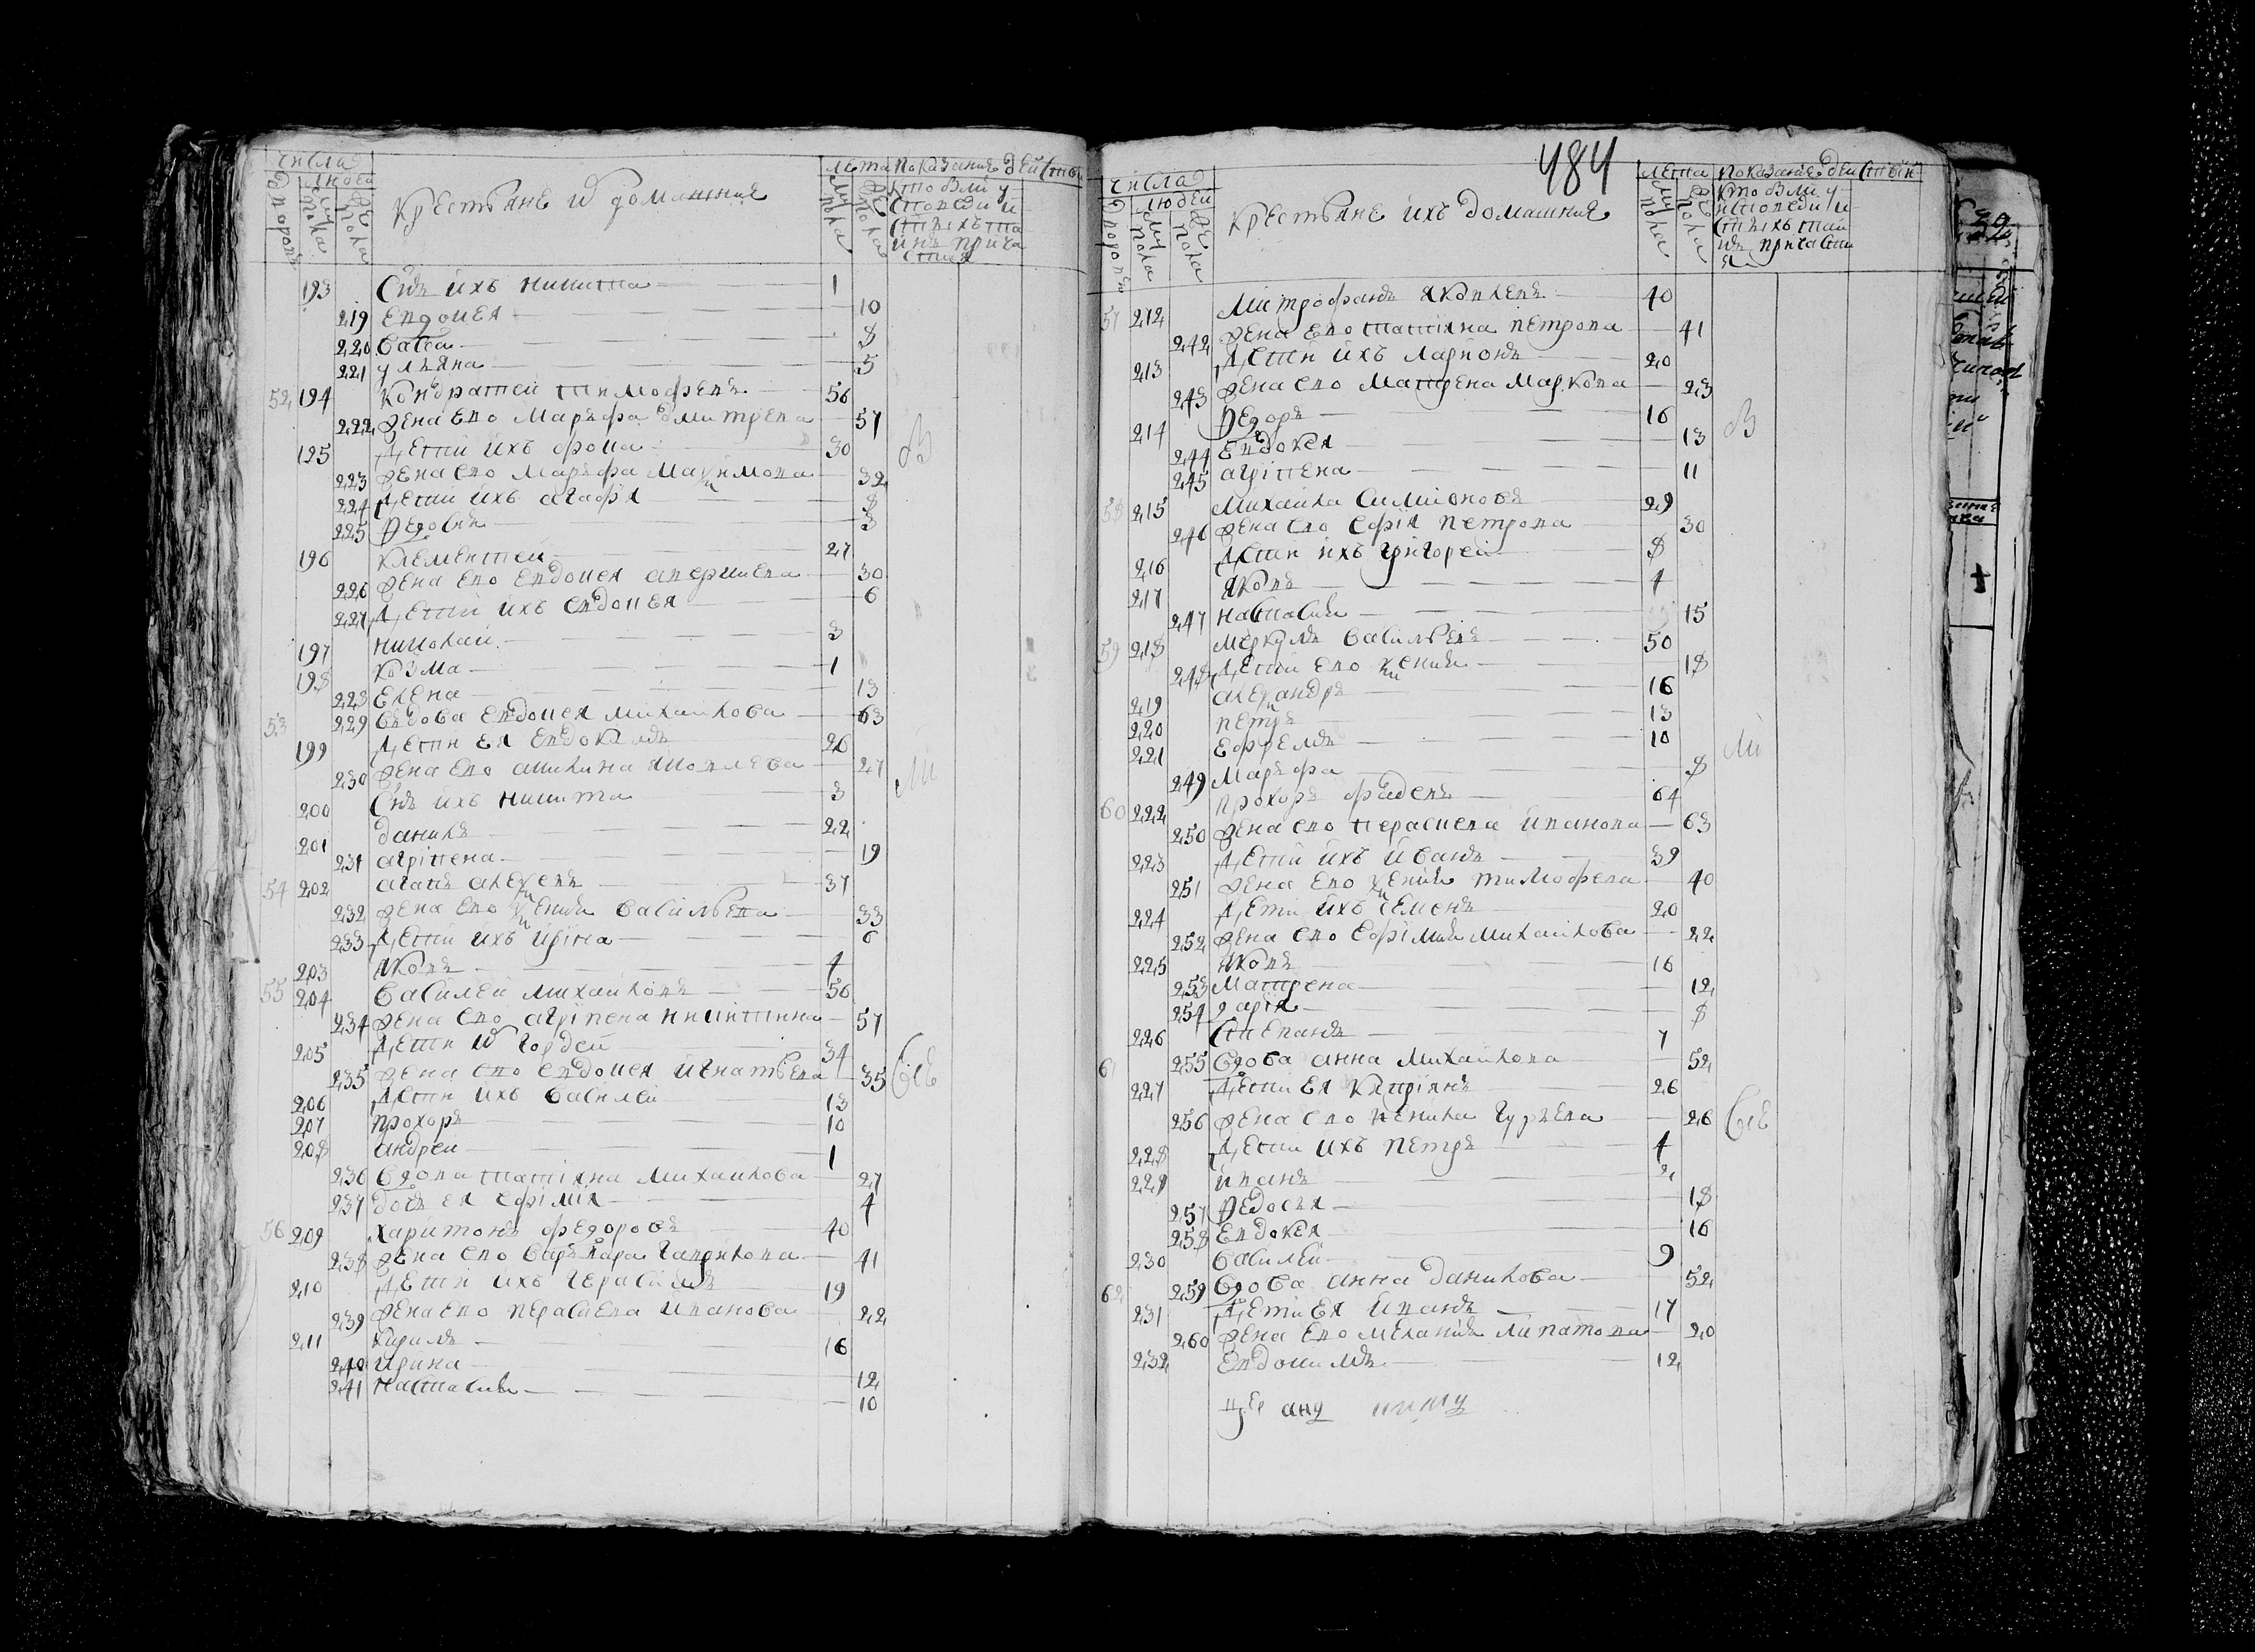 числа
людей
дворовъ
муска
пола
женска
пола
Крестьяне и домашние
лѣта
муска
пола
женска
пола
показание действ
кто были у
исповеди и
стыхъ та
инъ прича
стия
193 Снъ ихъ никита 1
219 Евдокея 10
220 Васса 8
221 ульяна 5
52 194 Кондратей тимофеевъ 56
222 жена ево Марьфа дмитрева 57
195 дети ихъ фома 30
223 жена ево Марьфа Максимова 32
224 дети ихъ агафя 8
225 Федосья 3
196 Клементей 27
226 жена ево Евдокея аверкиева 30
227 дети ихъ евдокея 6
197 николай 3
198 козма 1
228 Елена 13
53 229 вдова Евдокея михаилова 63
199 дети ея Евдокимъ 26
230 жена ево акилина яковлева 27
200 Снъ ихъ никита 3
201 данила 22
231 агрипена 19
54 202 агапъ алексеевъ 37
232 жена ево ксения васильева 33
233 дети ихъ ирина 6
203 яковъ 4
55 204 василей михаиловъ 56
234 жена ево агрипена никитина 57
205 дети их гордей 34
235 жена ево евдокея игнатьева 35
206 дети ихъ василеи 13
207 прохоръ 10
208 андреи 1
236 вдова татияна михаилова 27
237 дочь ея ефимия 4
56 209 харитонъ федоровъ 40
238 жена ево варвара гаврилова 41
210 дети ихъ герасимъ 19
239 жена ево параскева иванова 22
211 кирила 16
240 ирина 12
241 наталия 10
484
числа
людей
дворовъ
муска
пола
женска
пола
Крестьяне ихъ домашние
лета
муска
пола
женска
пола
показание действии
кто были у
исповеди и
стыхъ таи
нъ причасти
я
57 212 Митрофанъ яковлевъ 40
242 жена ево татияна петрова 41
213 дети ихъ ларионъ 20
243 жена ево матрена маркова 23
214 Федоръ 16
244 Евдокея 13
245 агрипена 11
58 215 михаила симионовъ 29
246 жена ево софия петрова 30
216 дети ихъ григорей 8
217 яковъ 4
247 наталия 15
59 218 меркулъ васильевъ 50
248 дети ево ксения 18
219 александръ 16
220 петръ 13
221 ефремъ 10
249 марьфа 8
60 222 прохоръ фадеевъ 64
250 жена ево параскева иванова 63
223 дети ихъ иванъ 39
251 жена ево ксения тимофева 40
224 дети ихъ семенъ 20
252 жена ево ефимия михаилова 22
225 яковъ 16
253 матрена 12
254 дария 8
226 степанъ 7
61 255 вдова анна михаилова 52
227 дети ея киприянъ 26
256 жена ево гурьева 26
228 дети ихъ петръ 4
229 иванъ 2
257 Федосья 18
258 Евдокея 16
230 василей 9
62 259 вдова анна данилова 52
231 дети ея иванъ 17
260 жена ево мелания липатова 20
232 Евдокимъ 12